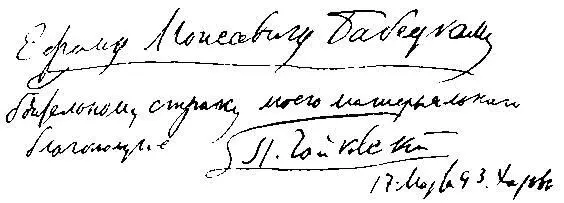 Ефрему Моисеевичу Бабецкому
бдительному стражу моего матерьяльного
благополучие
П. Чайковский
17 Марта 93. Харьк